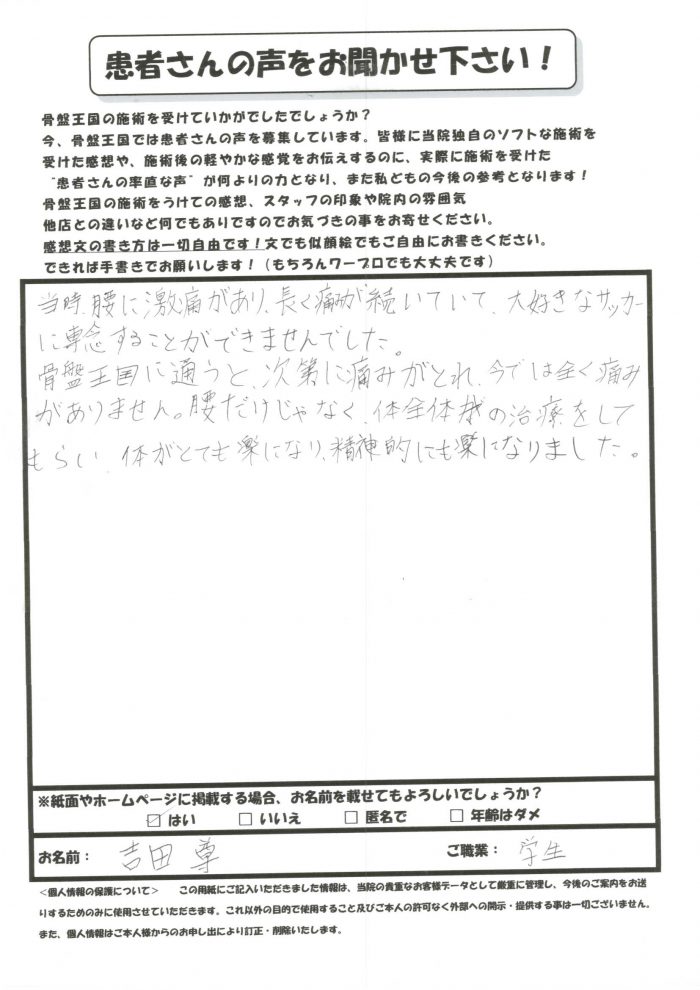 患者さんの声をお聞かせ下さい！
骨盤王国の施術を受けていかがでしたでしょうか？
今、骨盤王国では患者さんの声を募集しています。皆様に当院独自のソフトな施術を
受けた感想や、施術後の軽やかな感覚をお伝えするのに、実際に施術を受けた
“患者さんの率直な声”が何よりの力となり、また私どもの今後の参考となります！
骨盤王国の施術をうけての感想、スタッフの印象や院内の雰囲気
他店との違いなど何でもありですのでお気づきの事をお寄せください。
感想文の書き方は一切自由です！文でも似顔絵でもご自由にお書きください。
できれば手書きでお願いします！（もちろんワープロでも大丈夫です）
当時、腰に激痛があり、長く痛みが続いていて、大好きなサッカー
に専念することができませんでした。
骨盤王国に通うと、次第に痛みがとれ、今では全く痛み
がありません。腰だけじゃなく、体全体の治療をして
もらい、体がとても楽になり、精神的にも楽になりました。
※紙面やホームページに掲載する場合、お名前を載せてもよろしいでしょうか？
☑ はい □ いいえ □ 匿名で □ 年齢はダメ
お名前： 吉田 尊 ご職業： 学生
＜個人情報の保護について＞ この用紙にご記入いただきました情報は、当院の貴重なお客様データとして厳重に管理し、今後のご案内をお送
りするためのみに使用させていただきます。これ以外の目的で使用すること及びご本人の許可なく外部への開示・提供する事は一切ございません。
また、個人情報はご本人様からのお申し出により訂正・削除いたします。